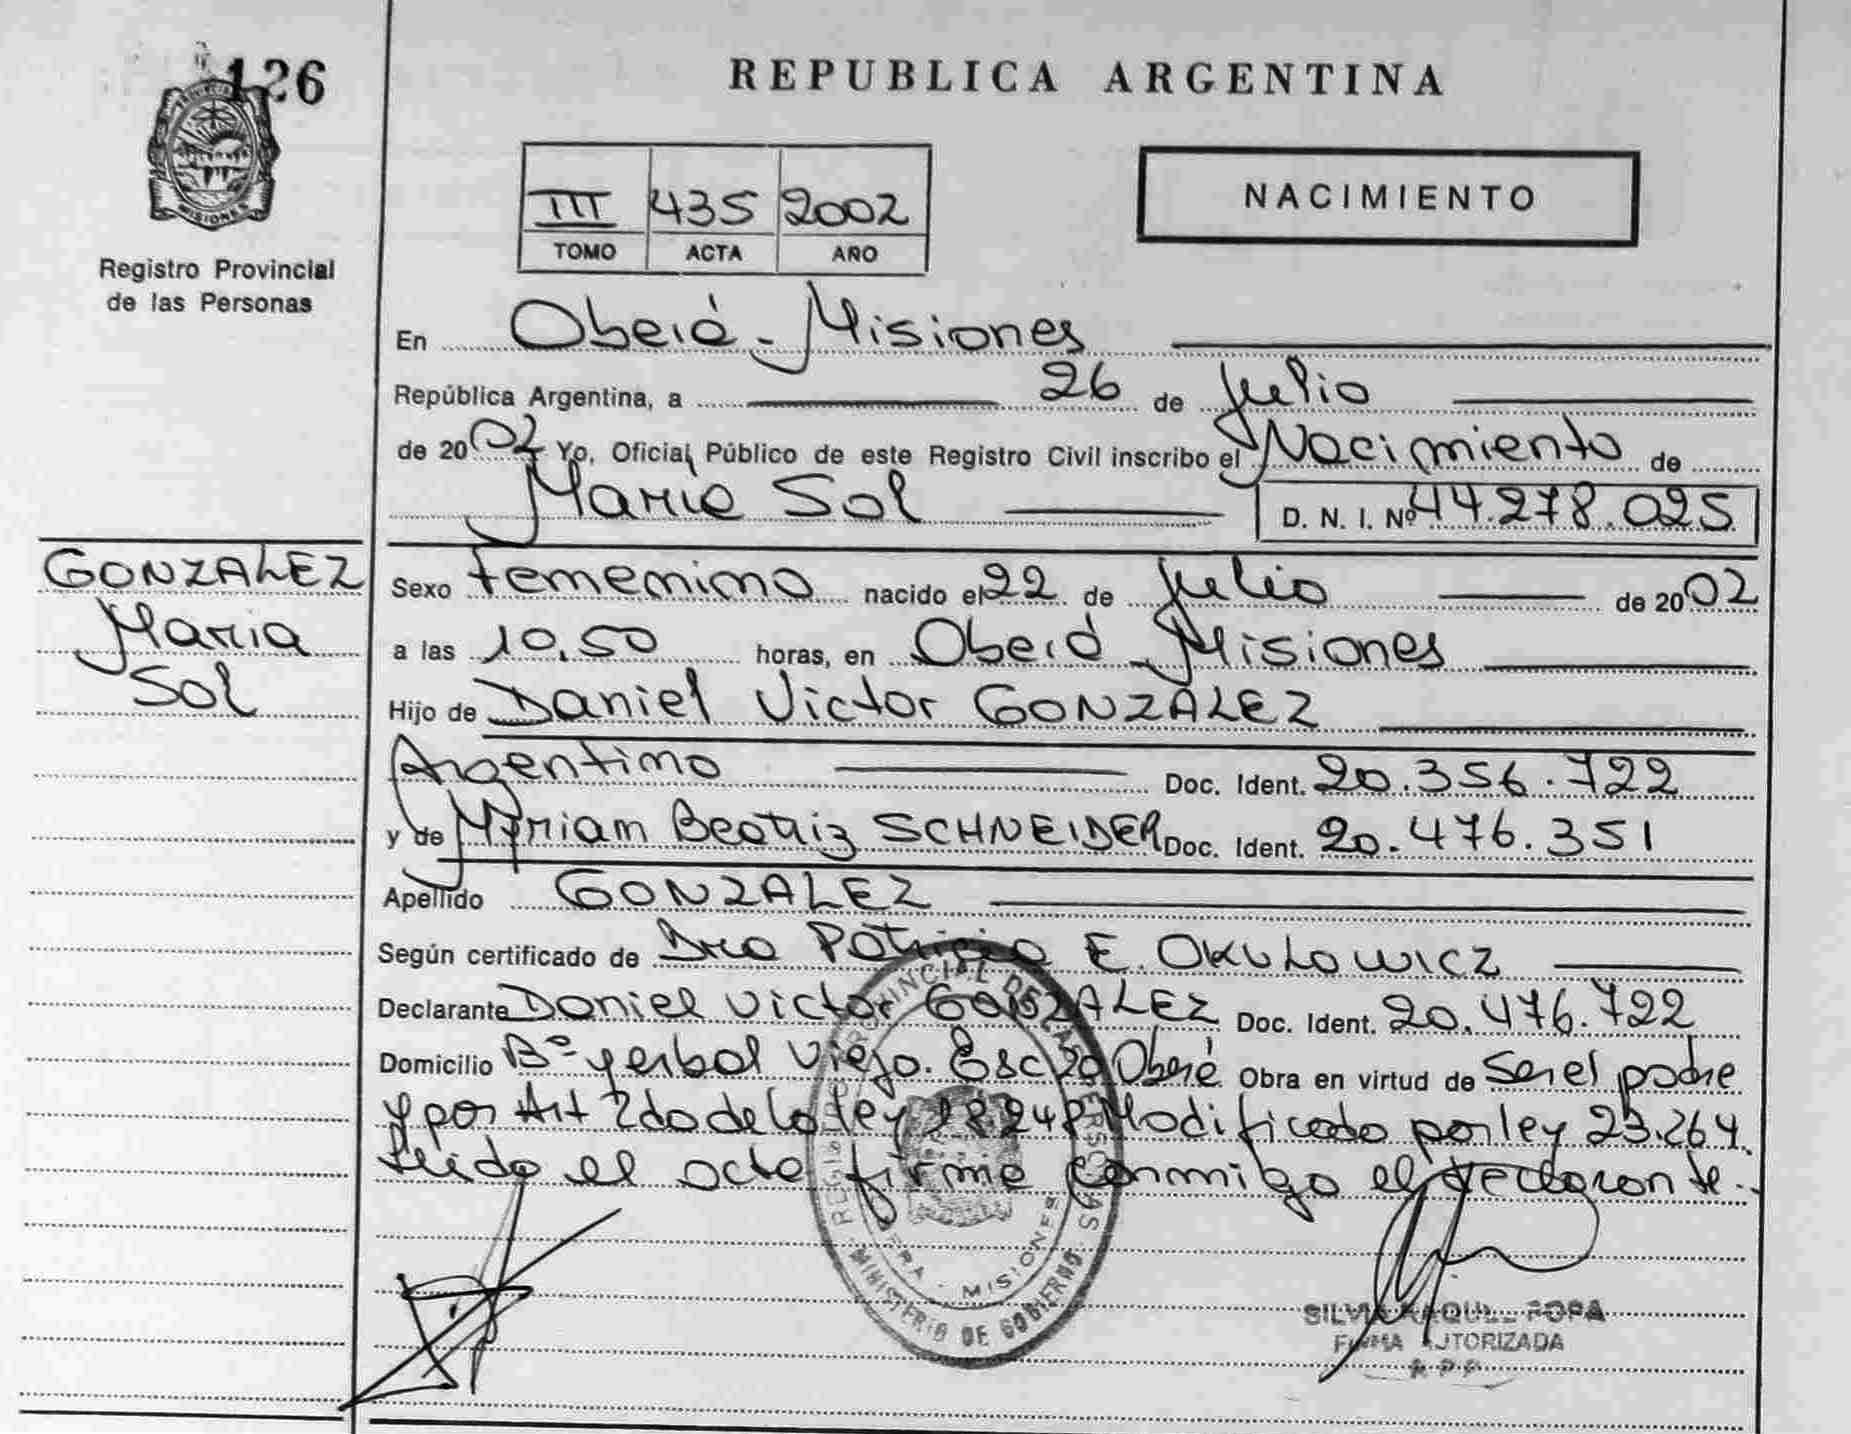 126
REPUBLICA ARGENTINA
MISIONES
Registro Provincial
de las Personas
III 435 2002
TOMO ACTA AÑO
NACIMIENTO
En Oberá - Misiones
República Argentina, a 26 de Julio
de 2002 Yo, Oficial Público de este Registro Civil inscribo el Nacimiento de
Maria Sol D. N. I. Nº 44.278.025
GONZALEZ
Maria
Sol
Sexo femenino nacido el 22 de Julio de 2002
a las 10,50 horas, en Oberá - Misiones
Hijo de Daniel Victor GONZALEZ
Argentino Doc. Ident. 20.356.722
y de Myriam Beatriz SCHNEIDER Doc. Ident. 20.476.351
Apellido GONZALEZ
Según certificado de Dra Patricia E. OKULOWICZ
Declarante Daniel Victor GONZALEZ Doc. Ident. 20.476.722
Domicilio Bº yerbal Viejo. Esc Oberá Obra en virtud de ser el padre
y por Art 2do de la ley 18.248 Modificado por ley 23.264.
Leido el acta firma conmigo el declarante.
REGISTRO PROVINCIAL DE LAS PERSONAS
MISIONES
MINISTERIO DE GOBIERNO
SILVIA RAQUEL POPA
FIRMA AUTORIZADA